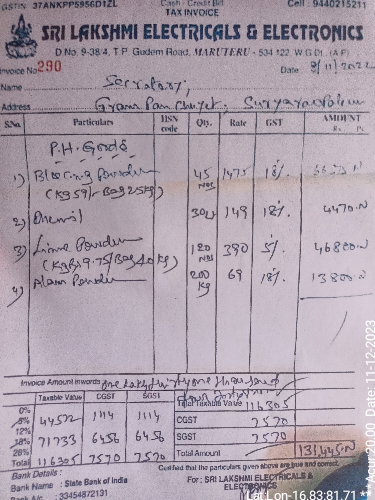 GSTIN 37ANKPP5956D1ZL Cash - Credit Bill Cell : 9440215211
TAX INVOICE
SRI LAKSHMI ELECTRICALS & ELECTRONICS
D.No. 9-38/4, T.P. Gudem Road, MARUTERU - 534 122, W.G.Dt., (A.P)
Invoice No 290 Date
Name Secretary,
Address Gram Panchayat,
S.No. Particulars HSN code Qty. Rate GST AMOUNT Rs. Ps.
P.H. Goods
1) Bleaching Powder 45 Nos 1475 18%
(Kg 59/- Bag 25kg)
2) 30 149 18% 4470
3) Lime Powder 120 Nos 390 5% 46800
(Kg 9.75/Bag 40kg)
4) Alum Powder 200 Kg 69 18% 13800
Invoice Amount inwords One Lakh Thirty one thousand
Taxable Value CGST SGST Total Taxable Value 116305
0%
5% 44572 1114 1114 CGST 7570
12%
18% 71733 6456 6456 SGST 7570
28%
Total 116305 7570 7570 Total Amount 131445
Bank Details : Certified that the particulars given above are true and correct.
Bank Name : State Bank of India For: SRI LAKSHMI ELECTRICALS &
ELECTRONICS
33454872131
Lat Lon-16.83:81.71 * Acu: 20.00 Date: 11-12-2023